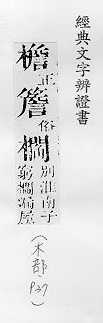 經典文字辨證書
檐正簷俗櫩別淮南子
窮櫩漏屋
(木部,p.27)